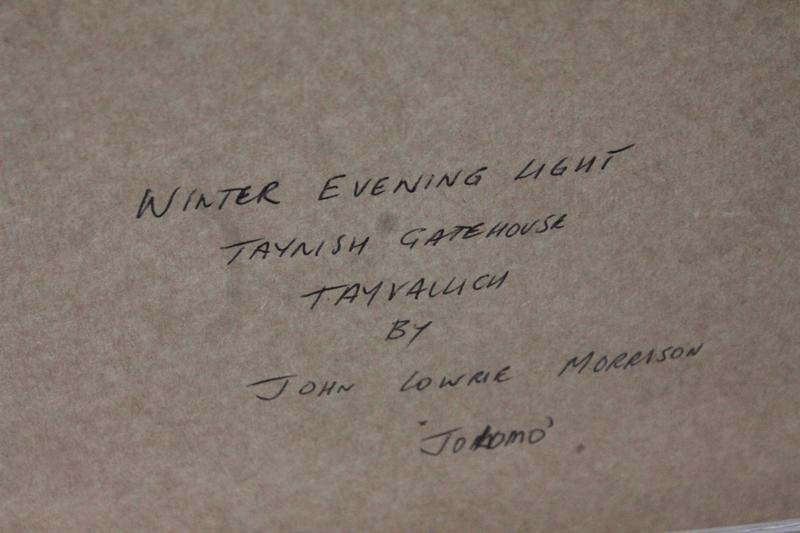 WINTER EVENING LIGHT
TAYNISH GATEHOUSE
TAYVALLICH
BY
JOHN LOWRIE MORRISON
'JOLOMO'